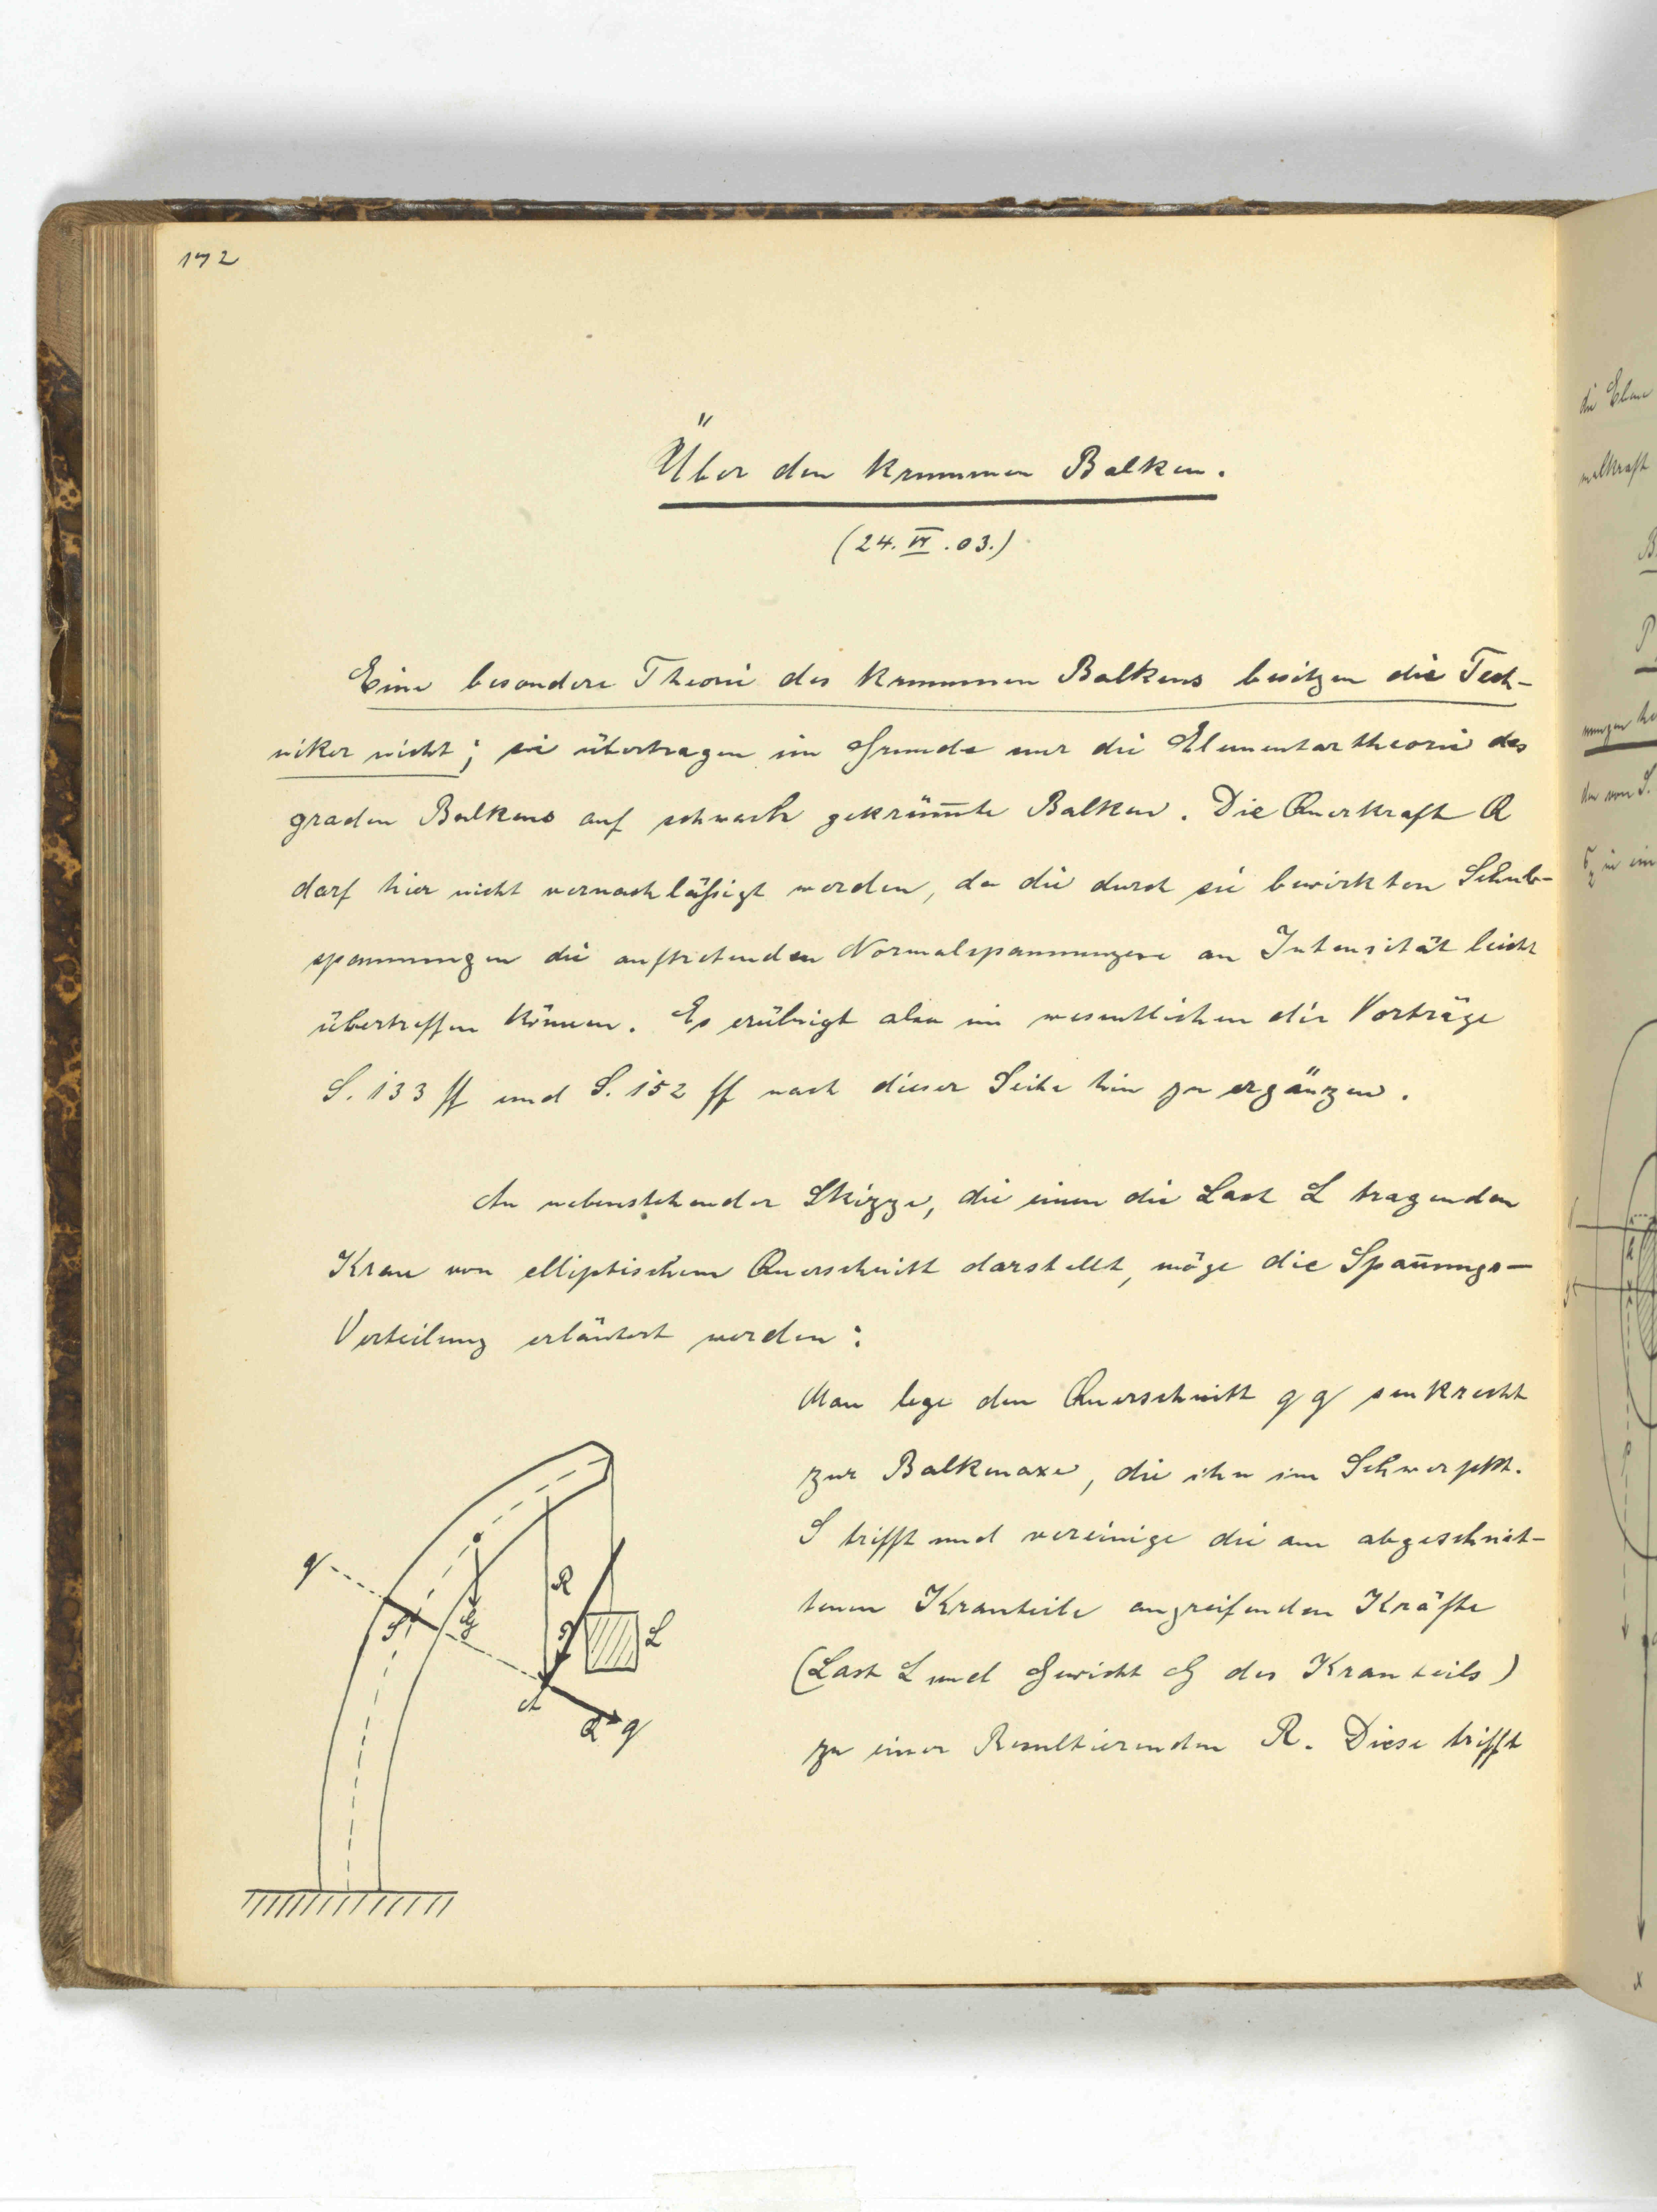 172
Über den krummen Balken.
(24. VI. 03.)
Eine besondere Theorie des krummen Balkens besitzen die Tech-
niker nicht; sie übertragen im Grunde nur die Elementartheorie des
graden Balkens auf schwach gekrüm̅te Balken. Die Querkraft Q
darf hier nicht vernachläßigt werden, da die durch sie bewirkten Schub-
spannungen die auftretenden Normalspannungen an Intensität leicht
übertreffen können. Es erübrigt also im wesentlichen die Vorträge
S. 133 ff und S. 152 ff nach dieser Seite hin zu ergänzen.
An nebenstehender Skizze, die einen die Last L tragenden
Kran von elliptischem Querschnitt darstellt, möge die Span̅ungs-
Verteilung erläutert werden:
Man lege den Querschnitt q q senkrecht
zur Balkenaxe, die ihn im Schwerpkt.
S trifft und vereinige die am abgeschnit-
tenen Kranteile angreifenden Kräfte
(Last L und Gewicht G des Kranteils)
zu einer Resultierenden R. Diese trifft
q
S
G
R
L
A
Q
q
die Ebene
malkraft